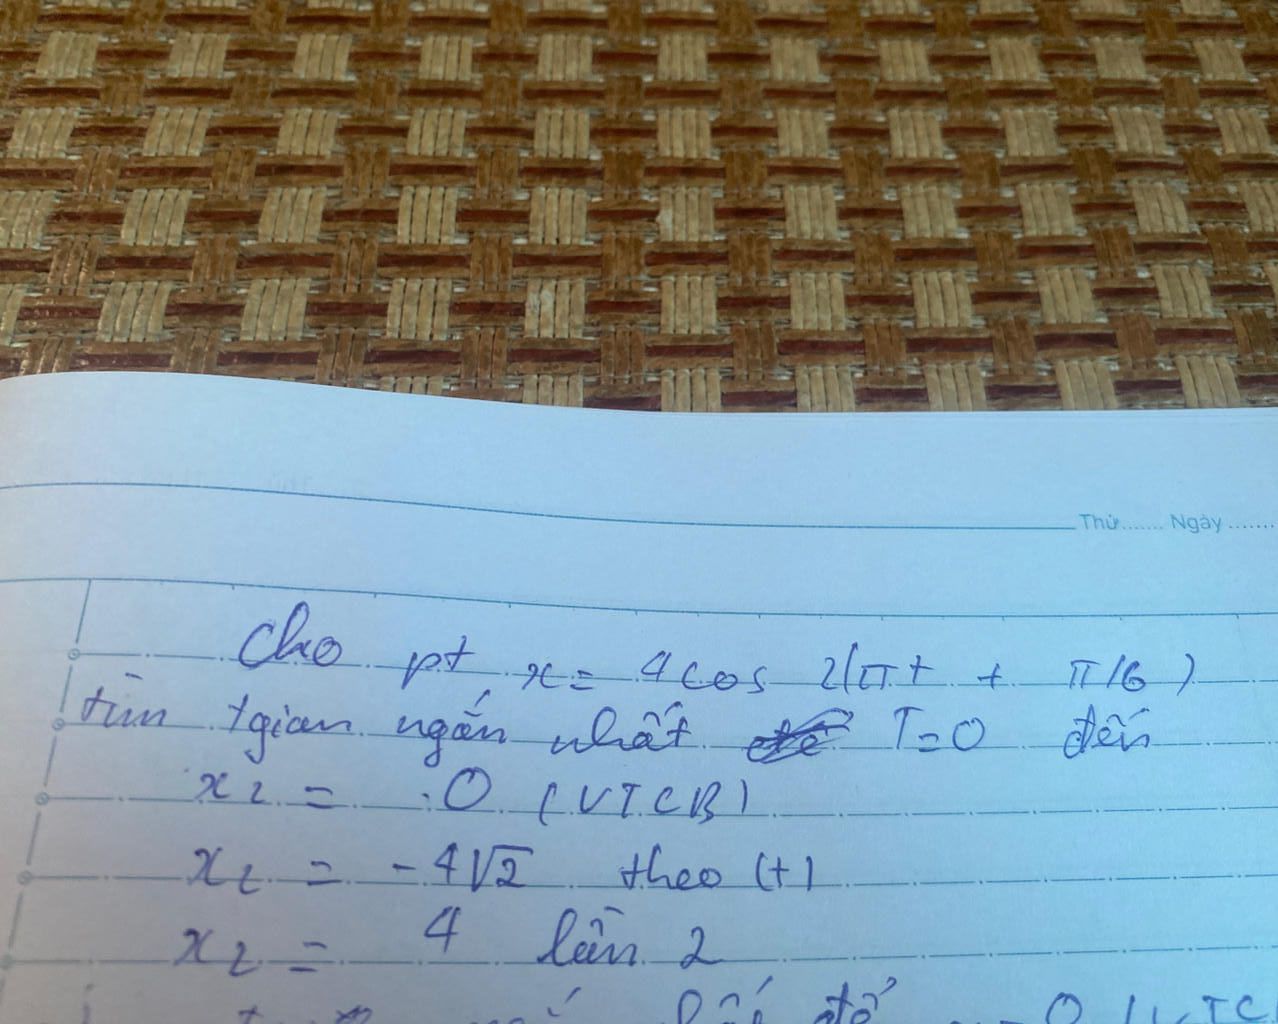 Thứ....... Ngày.......
Cho pt x = 4cos 2(πt + π/6)
tìm tgian ngắn nhất T=0 đến
x2 = 0 (VTCB)
x2 = -4√2 theo (+)
x2 = 4 lần 2